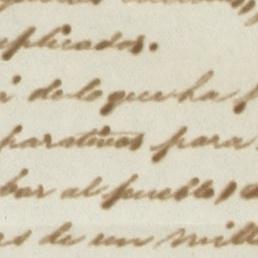 aplicador.
de lo que ha
parativos para
bar al pueblo,
de un mill